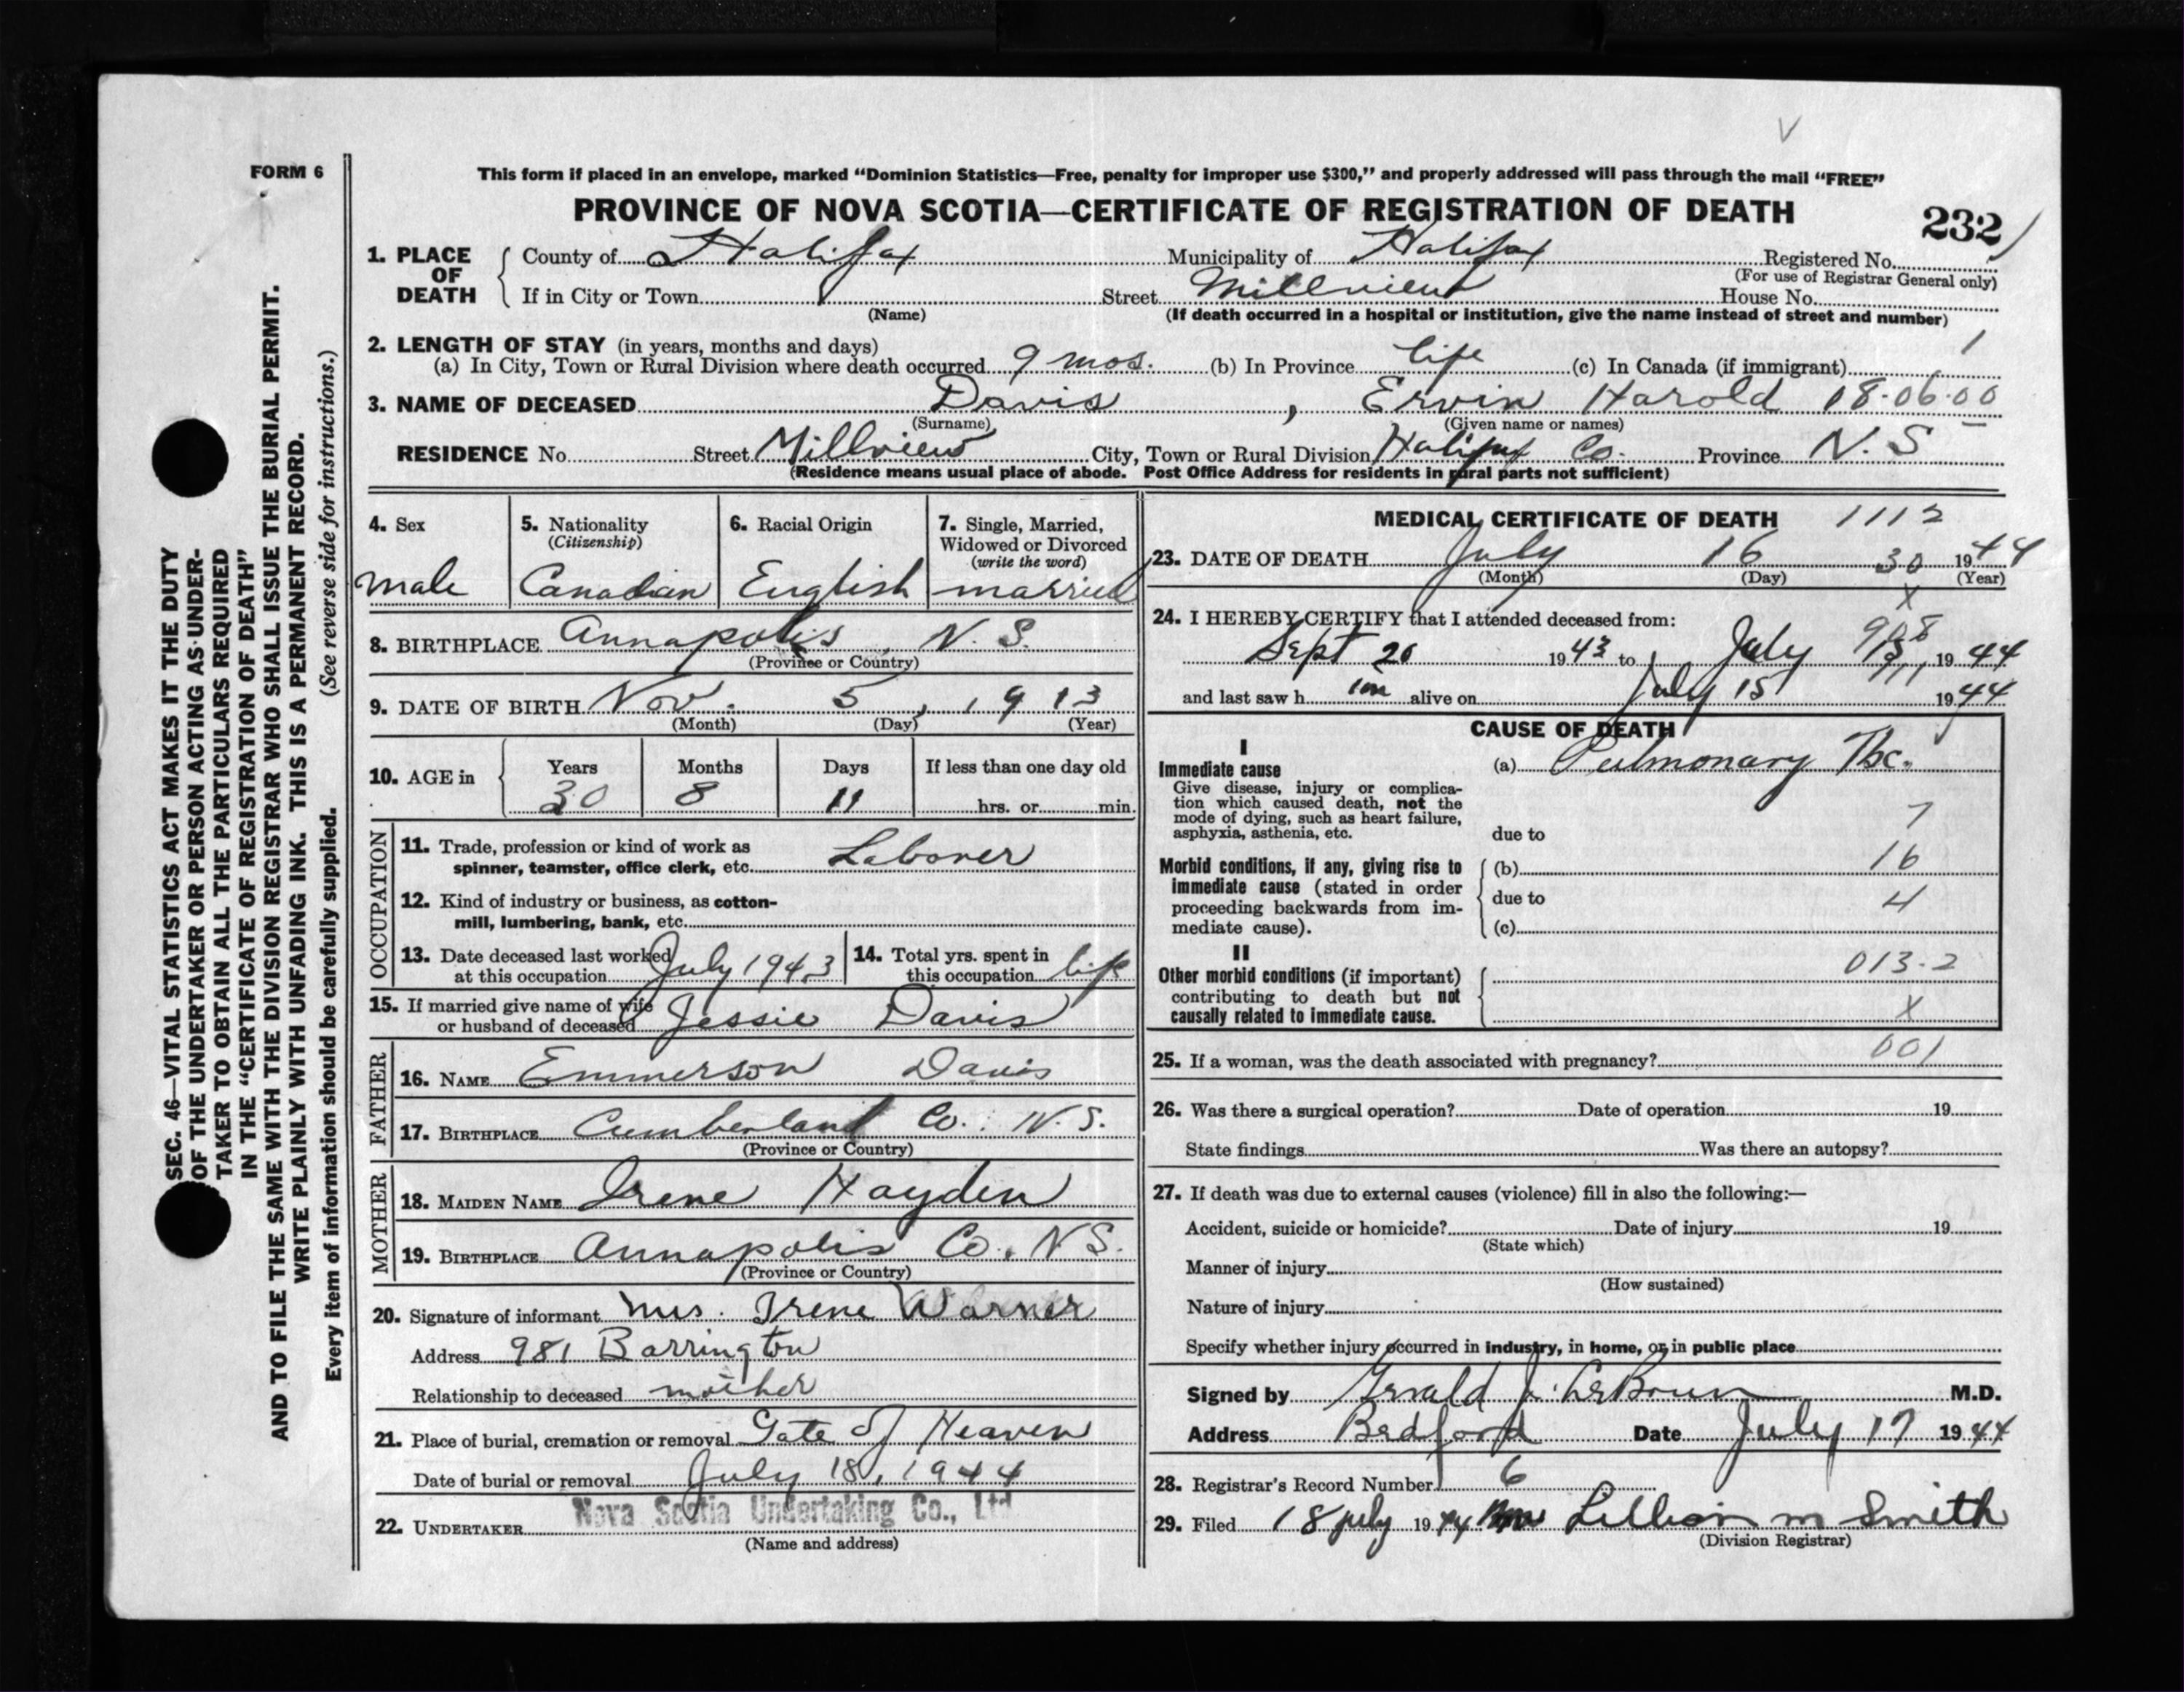 V
FORM 6
This form if placed in an envelope, marked “Dominion Statistics—Free, penalty for improper use $300,” and properly addressed will pass through the mail “FREE”
PROVINCE OF NOVA SCOTIA—CERTIFICATE OF REGISTRATION OF DEATH
232
1. PLACE OF DEATH { County of Halifax Municipality of Halifax Registered No.
(For use of Registrar General only)
If in City or Town Street Millview House No.
(Name) (If death occurred in a hospital or institution, give the name instead of street and number)
2. LENGTH OF STAY (in years, months and days) 1
(a) In City, Town or Rural Division where death occurred 9 mos. (b) In Province life (c) In Canada (if immigrant)
3. NAME OF DECEASED Davis , Ervin Harold 18-06-00
(Surname) (Given name or names)
RESIDENCE No. Street Millview City, Town or Rural Division Halifax Co. Province N.S
(Residence means usual place of abode. Post Office Address for residents in rural parts not sufficient)
4. Sex male
5. Nationality (Citizenship) Canadian
6. Racial Origin English
7. Single, Married, Widowed or Divorced (write the word) married
8. BIRTHPLACE Annapolis, N.S.
(Province or Country)
9. DATE OF BIRTH Nov. 5, 1913
(Month) (Day) (Year)
10. AGE in { Years 30 Months 8 Days 11 If less than one day old hrs. or min.
OCCUPATION
11. Trade, profession or kind of work as
spinner, teamster, office clerk, etc. Laborer
12. Kind of industry or business, as cotton-
mill, lumbering, bank, etc.
13. Date deceased last worked
at this occupation July 1943
14. Total yrs. spent in
this occupation life
15. If married give name of wife
or husband of deceased Jessie Davis
FATHER
16. NAME Emmerson Davis
17. BIRTHPLACE Cumberland Co. N.S.
(Province or Country)
MOTHER
18. MAIDEN NAME Irene Hayden
19. BIRTHPLACE Annapolis Co., N.S.
(Province or Country)
20. Signature of informant Mrs. Irene Warner
Address 981 Barrington
Relationship to deceased mother
21. Place of burial, cremation or removal Gate of Heaven
Date of burial or removal July 18, 1944
22. UNDERTAKER Nova Scotia Undertaking Co., Ltd
(Name and address)
MEDICAL CERTIFICATE OF DEATH 1112
23. DATE OF DEATH July 16 30 1944
(Month) (Day) (Year)
X
24. I HEREBY CERTIFY that I attended deceased from:
Sept 20 1943 to July 1944
and last saw h im alive on July 15 1944
CAUSE OF DEATH
I
Immediate cause (a) Pulmonary Tbc.
Give disease, injury or complica-
tion which caused death, not the
mode of dying, such as heart failure, 7
asphyxia, asthenia, etc. due to
Morbid conditions, if any, giving rise to (b) 16
immediate cause (stated in order
proceeding backwards from im- due to 4
mediate cause). (c)
II
Other morbid conditions (if important) 013-2
contributing to death but not
causally related to immediate cause. X
25. If a woman, was the death associated with pregnancy? 001
26. Was there a surgical operation? Date of operation 19
State findings Was there an autopsy?
27. If death was due to external causes (violence) fill in also the following:—
Accident, suicide or homicide? Date of injury 19
(State which)
Manner of injury
(How sustained)
Nature of injury
Specify whether injury occurred in industry, in home, or in public place
Signed by Gerald J. M.D.
Address Bedford Date July 17 1944
28. Registrar's Record Number 6
29. Filed 18 July 1944 Lillian M Smith
(Division Registrar)
SEC. 46—VITAL STATISTICS ACT MAKES IT THE DUTY
OF THE UNDERTAKER OR PERSON ACTING AS UNDER-
TAKER TO OBTAIN ALL THE PARTICULARS REQUIRED
IN THE “CERTIFICATE OF REGISTRATION OF DEATH”
AND TO FILE THE SAME WITH THE DIVISION REGISTRAR WHO SHALL ISSUE THE BURIAL PERMIT.
WRITE PLAINLY WITH UNFADING INK. THIS IS A PERMANENT RECORD.
Every item of information should be carefully supplied. (See reverse side for instructions.)